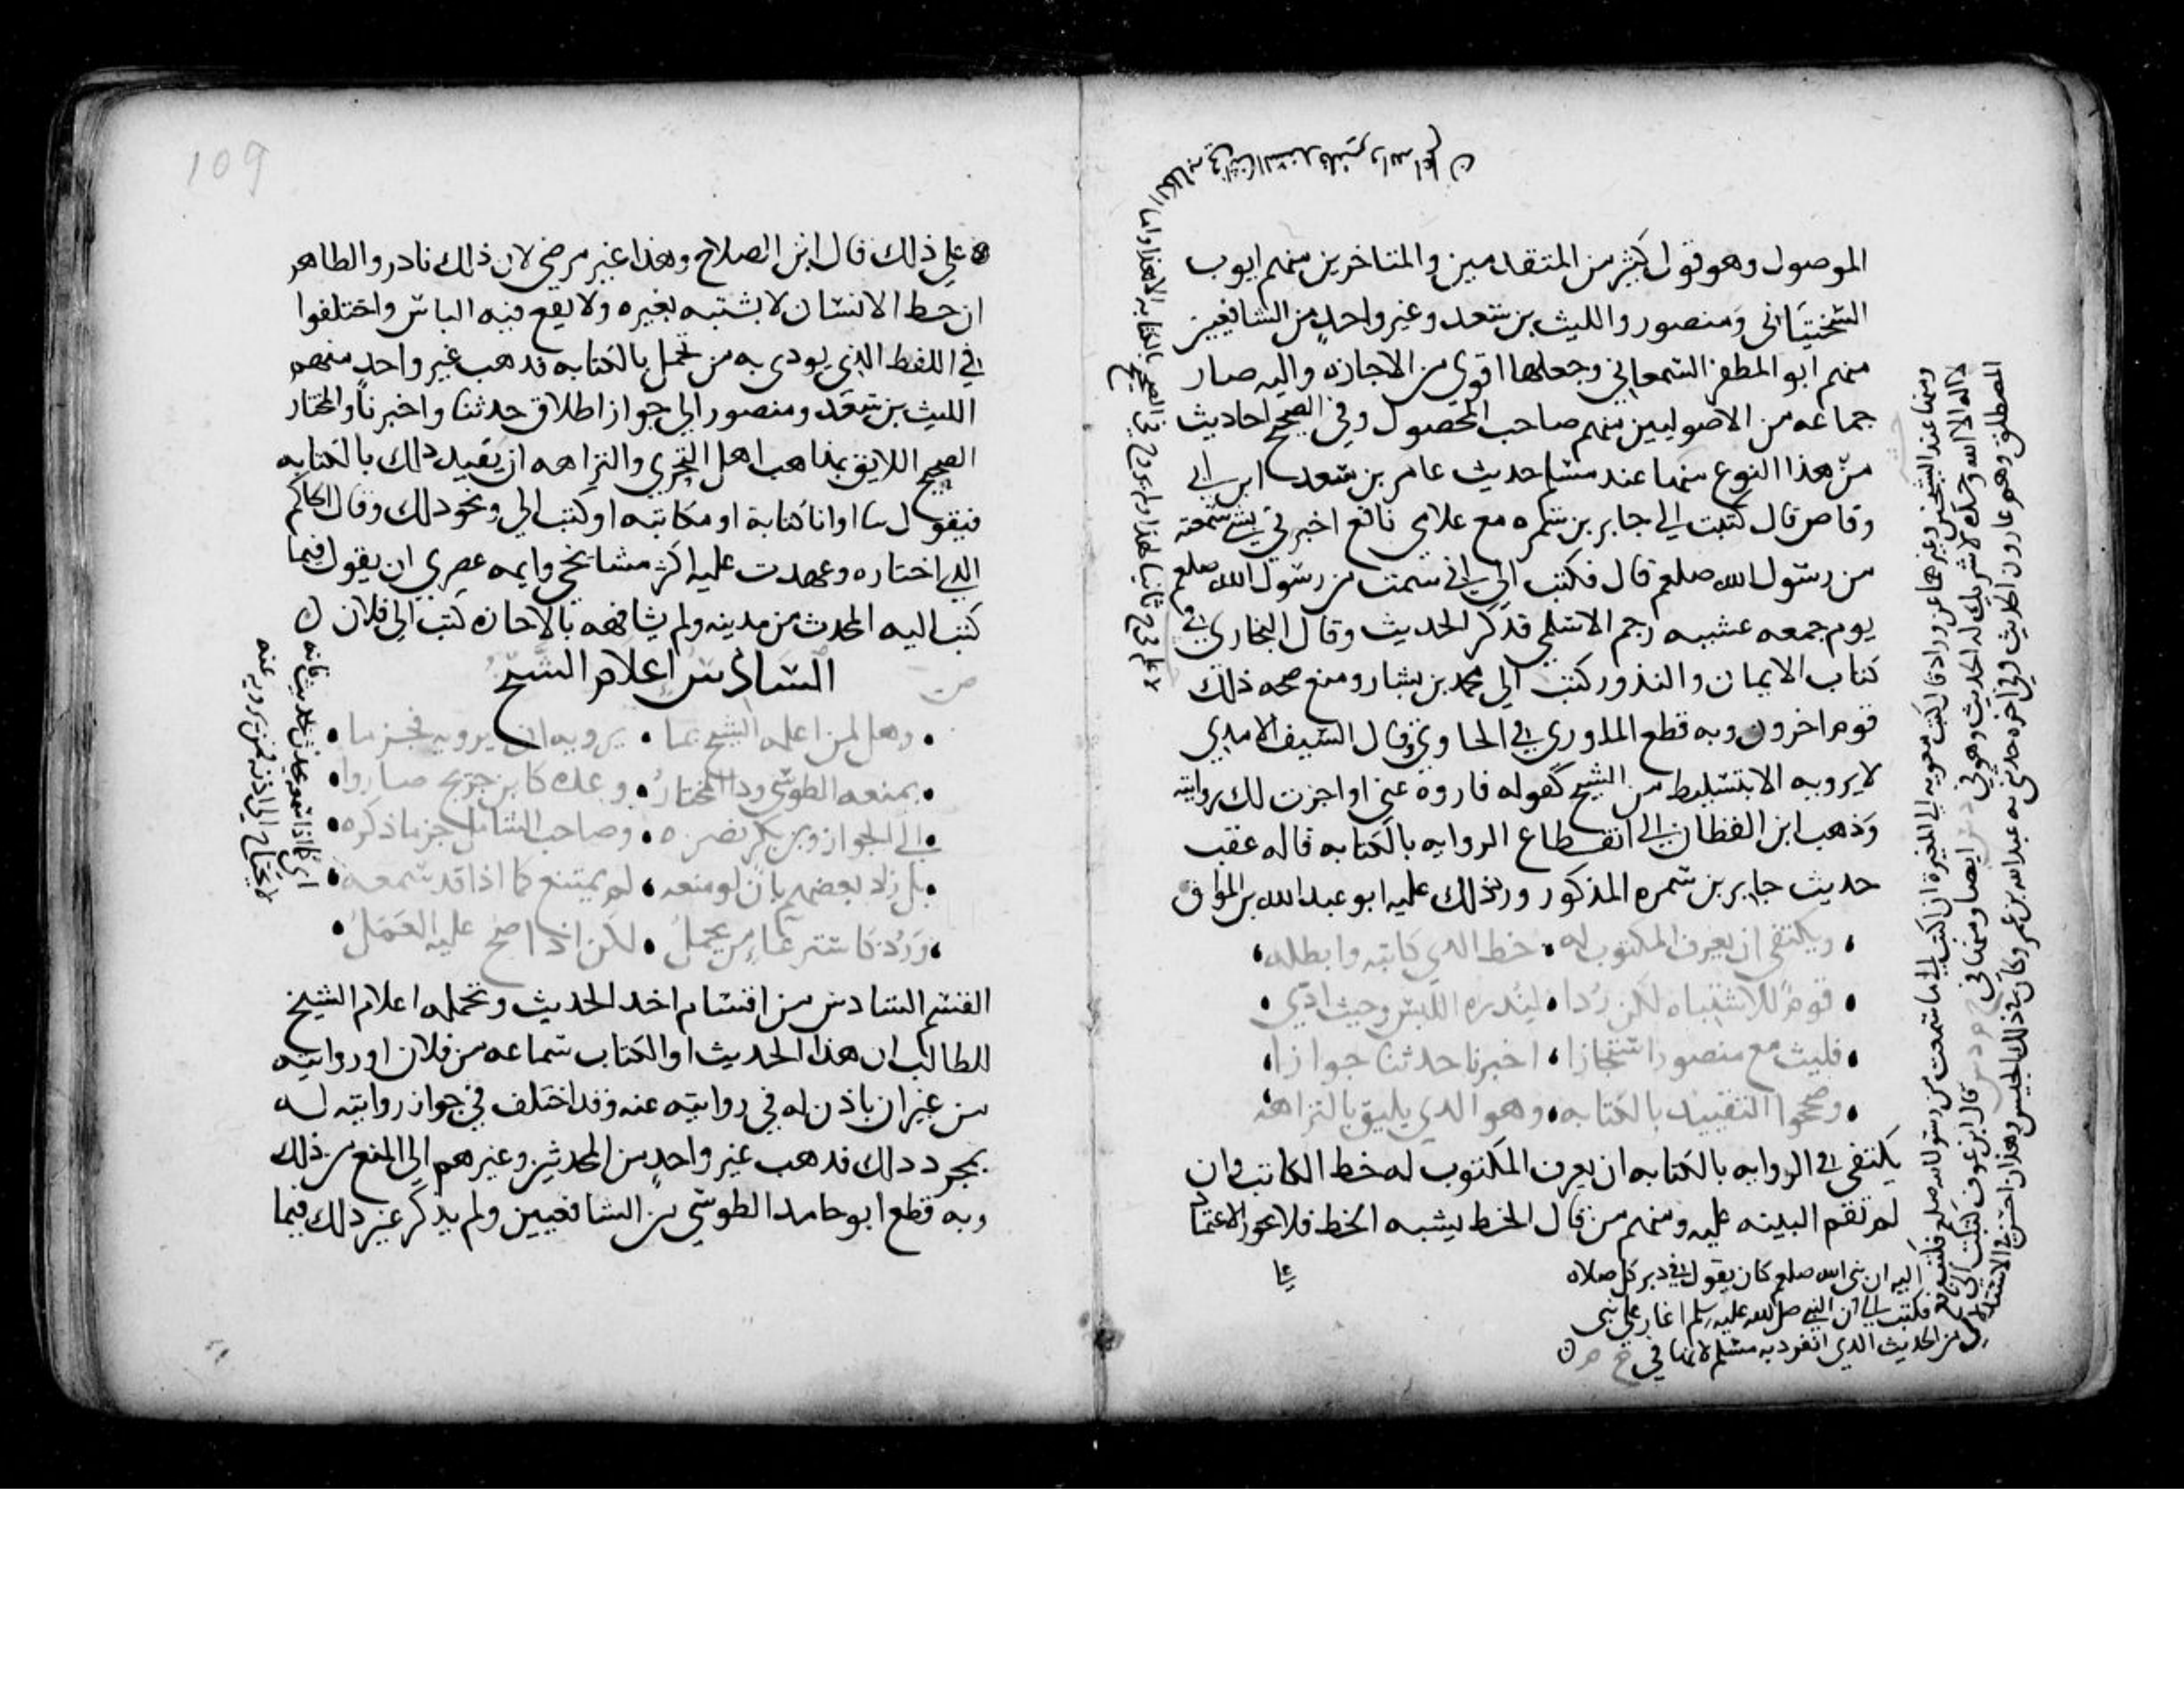 الموصول وهو قول كثير من المتقدمين والمتاخرين منهم ايوب
السختياني ومنصور والليث بن سعد وغير واحد من الشافعيين
منهم ابو المظفر السمعاني وجعلها اقوى من الاجازه واليه صار
جماعه من الاصوليين منهم صاحب المحصول وفي الصحيح احاديث
من هذا النوع منها عند مسلم حديث عامر بن سعد ابن ابي
وقاص قال كتبت الي جابر بن سمره مع غلامي نافع اخبرني بشي سمعته
من رسول الله صلعم قال فكتب الي اني سمعت من رسول الله صلعم
يوم جمعه عشيه رجم الاسلمي فذكر الحديث وقال البخاري في
كتاب الايمان والنذور كتب الي محمد بن بشار ومنع صحه ذلك
قوم اخرون وبه قطع الماوردي في الحاوي وقال السيف الامدي
لا يرويه الا بتسليط من الشيخ كقوله فاروه عني او اجزت لك روايته
وذهب ابن القطان الي انقطاع الروايه بالكتابه قاله عقب
حديث جابر بن سمره المذكور ورد ذلك عليه ابو عبد الله بن المواق
ويكتفى ان يعرف المكتوب له • خط الذي كاتبه وابطله
• قوم للاشتباه لكن ردا • لندره اللبس وحيث ادى •
• فليث مع منصور استجازا • اخبرنا حدثنا جوازا
• وصححوا التقييد بالكتابه • وهو الذي يليق بالنزاهه
يكتفى في الروايه بالكتابه ان يعرف المكتوب له خط الكاتب وان
لم تقم البينه عليه ومنهم من قال الخط يشبه الخط فلا يجوز الاعتماد
ومنها عند الشيخين وغيرهما عن وراد قال كتب معويه الي المغيرة ان اكتب الي ما سمعت من رسول الله صلعم فكتب
اليه ان نبي الله صلعم كان يقول في دبر كل صلاه
لا اله الا الله وحده لا شريك له الحديث وهو في ايضا ومنها في قال ابن عون كتبت الي نافع
فكتب الي ان النبي صلى الله عليه وسلم اغار على بني
المصطلق وهم غارون الحديث وفي اخره حدثني به عبد الله بن عمر وكان في ذلك الجيش وهذان احسن في الاستدلال
من الحديث الذي انفرد به مسلم لانهما في خ م
على
على ذلك قال ابن الصلاح وهذا غير مرضي لان ذلك نادر والظاهر
ان خط الانسان لا يشتبه بغيره ولا يقع فيه الباس واختلفوا
في اللفظ الذي يودي به من تحمل بالكتابه فذهب غير واحد منهم
الليث بن سعد ومنصور الي جواز اطلاق حدثنا واخبرنا والمختار
الصحيح اللايق بمذاهب اهل التحري والنزاهه ان يقيد ذلك بالكتابه
فيقول ثنا او انا كتابة او مكاتبه او كتب الي ونحو ذلك وقال الحاكم
الذي اختاره وعهدت عليه اكثر مشايخي وايمه عصري ان يقول فيما
كتب اليه المحدث من مدينه ولم يشافهه بالاجازه كتب الي فلان
السادس اعلام الشيخ
• وهل لمن اعلمه الشيخ بما • يرويه ان يرويه فجزما •
• بمنعه الطوسي وذا المختار • وعده كابن جريج صاروا •
• الي الجواز وابن بكر نصره • وصاحب الشامل جزما ذكره •
• بل زاد بعضهم بان لو منعه • لم يمتنع كما اذا قد سمعه •
• ورد كاسترعاء من يحمل • لكن اذا صح عليه العمل •
اي كما اذا سمعه يحدث بحديث فانه
لا يحتاج الي اذنه في ان يرويه عنه
القسم السادس من اقسام اخذ الحديث وتحمله اعلام الشيخ
للطالب ان هذا الحديث او الكتاب سماعه من فلان او روايته
من غير ان ياذن له في روايته عنه وقد اختلف في جواز روايته له
بمجرد ذلك فذهب غير واحد من المحدثين وغيرهم الي المنع من ذلك
وبه قطع ابو حامد الطوسي من الشافعيين ولم يذكر غير ذلك فيما
109